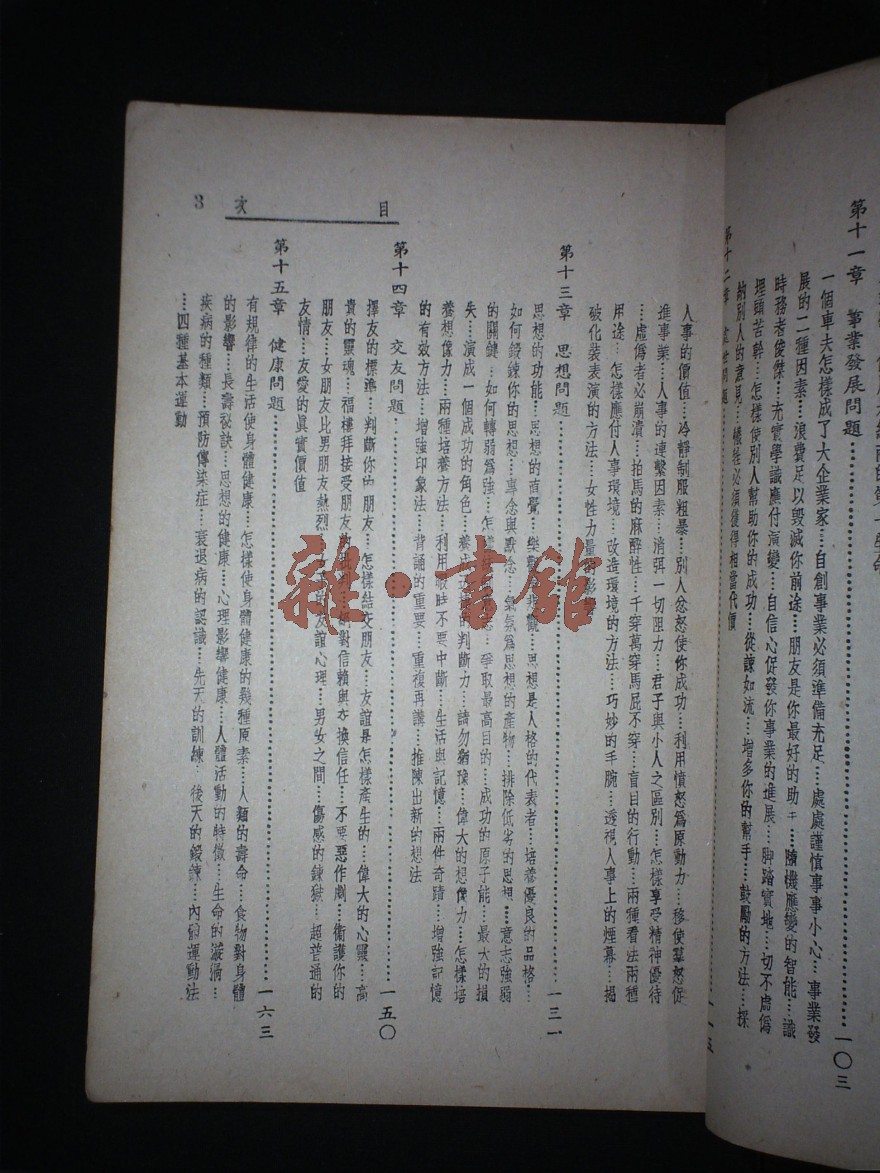 第十一章　事業發展問題……一〇三
一個車夫怎樣成了大企業家…自創事業必須準備充足…處處謹慎事事小心…事業發
展的二種因素…浪費足以毀滅你前途…朋友是你最好的助…隨機應變的智能…識
時務者俊傑…充實學識應付演變…自信心促發你事業的進展…脚踏實地…切不虛僞
埋頭苦幹…怎樣使別人幫助你的成功…從諫如流…增多你的幫手…鼓勵的方法…採
納別人的意見…犧牲必須獲得相當代價
第十二章
目次　3
人事的價値…冷靜制服粗暴…別人忿怒使你成功…利用憤怒爲原動力…移使羣怒促
進事業…人事的連繫因素…消弭一切阻力…君子與小人之區別…怎樣享受精神優待
…虛僞者必崩潰…拍馬的麻醉性…千穿萬穿馬屁不穿…盲目的行動…兩種看法兩種
用途…怎樣應付人事環境…改造環境的方法…巧妙的手腕…透視人事上的煙幕…揭
破化裝表演的方法…女性力量
第十三章　思想問題……一三一
思想的功能…思想的直覺…樂觀…思想是人格的代表者…培養優良的品格…
如何鍛鍊你的思想…專念與默念…氣氛爲思想的產物…排除低劣的思想…意志強弱
的關鍵…如何轉弱爲強…怎樣…爭取最高目的…成功的原子能…最大的損
失…演成一個成功的角色…養成…的判斷力…請勿猶豫…偉大的想像力…怎樣培
養想像力…兩種培養方法…利用暇時不要中斷…生活與記憶…兩件奇蹟…增強記憶
的有效方法…增強印象法…背誦的重要…重複再講…推陳出新的想法
第十四章　交友問題……一五〇
擇友的標準…判斷你的朋友…怎樣結交朋友…友誼是怎樣產生的…偉大的心靈…高
貴的靈魂…福樓拜接受朋友的…對信賴與交換信任…不要惡作劇…衞護你的
朋友…女朋友比男朋友熱烈…友誼心理…男女之間…傷感的鍊獄…超普通的
友情…友愛的眞實價値
第十五章　健康問題……一六三
有規律的生活使身體健康…怎樣使身體健康的幾種原素…人類的壽命…食物對身體
的影響…長壽祕訣…思想的健康…心理影響健康…人體活動的特徵…生命的漩渦…
疾病的種類…預防傳染症…衰退病的認識…先天的訓練…後天的鍛鍊…內臟運動法
…四種基本運動
雜·書館